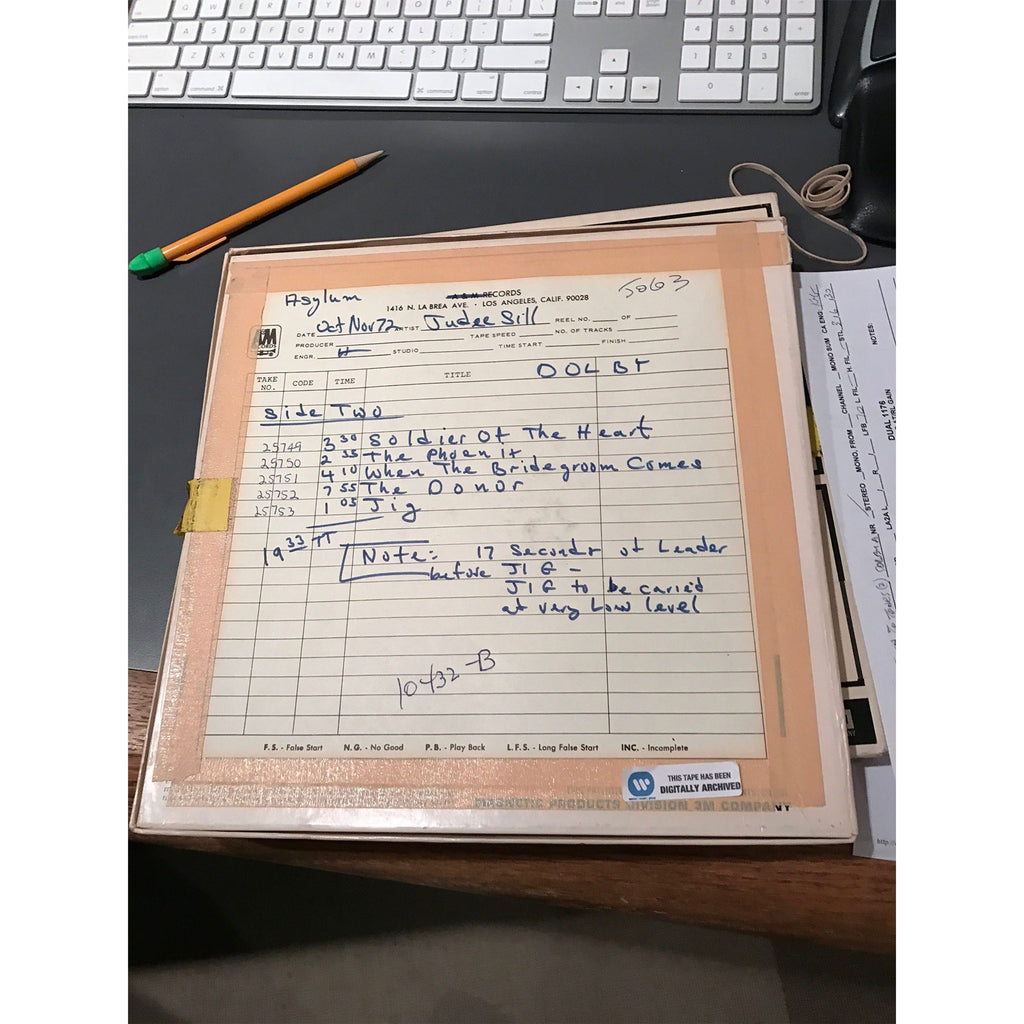 Asylum
A & M RECORDS
5063
1416 N. LA BREA AVE. • LOS ANGELES, CALIF. 90028
DATE Oct Nov 72 ARTIST Judee Sill REEL NO. OF
PRODUCER TAPE SPEED NO. OF TRACKS
ENGR. STUDIO TIME START FINISH
TAKE NO. CODE TIME TITLE DOLBY
Side Two
25749 3 30 Soldier Of The Heart
25750 2 35 The Phoenix
25751 4 10 When The Bridegroom Comes
25752 7 55 The Donor
25753 1 05 Jig
19 33 TT
Note: 17 Seconds of Leader
before JIG -
JIG to be caried
at very Low level
10432-B
F.S. - False Start N.G. - No Good P.B. - Play Back L.F.S. - Long False Start INC. - Incomplete
THIS TAPE HAS BEEN
DIGITALLY ARCHIVED
MAGNETIC PRODUCTS DIVISION 3M COMPANY
NOTES:
DUAL 1176
STEREO MONO, FROM CHANNEL MONO SUM